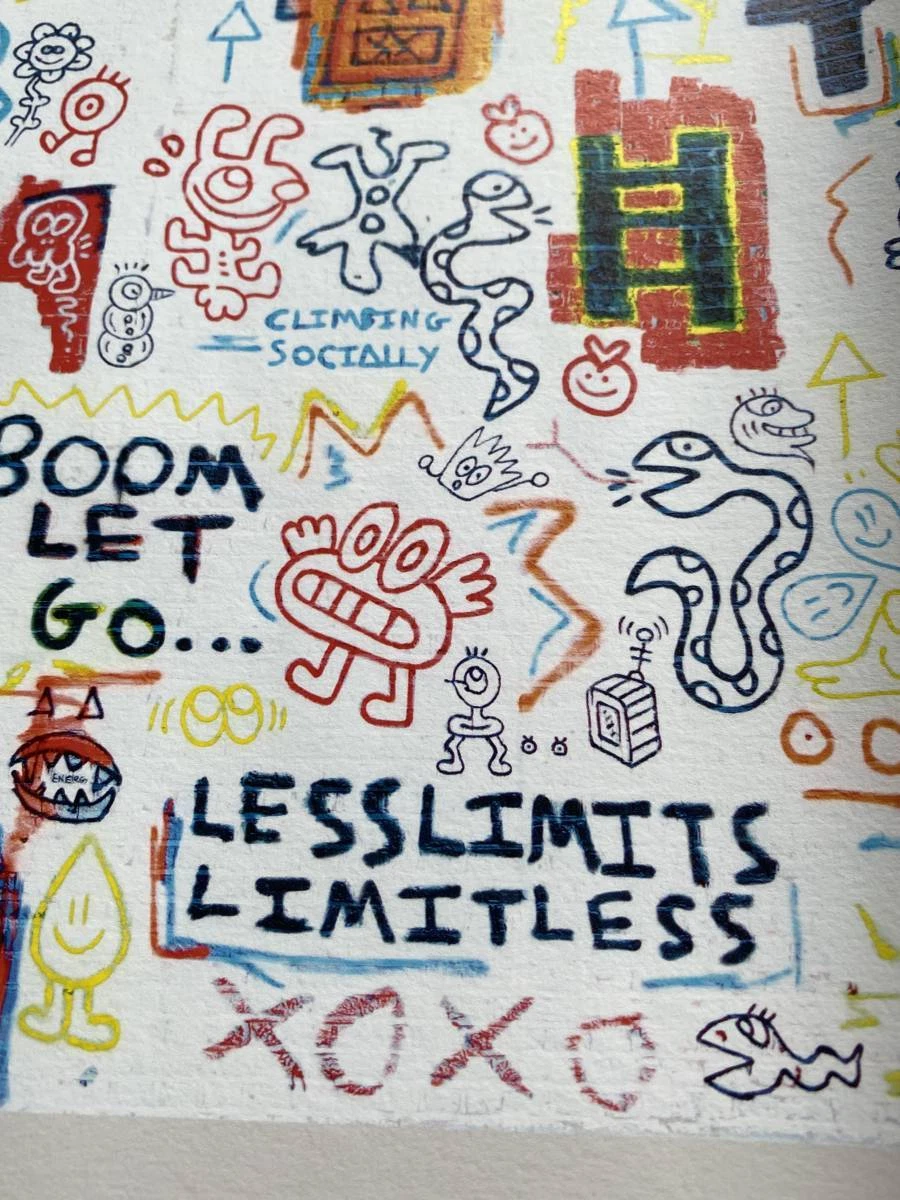 CLIMBING
SOCIALLY
BOOM
LET
GO...
ENERGY
LESSLIMITS
LIMITLESS
XOXO